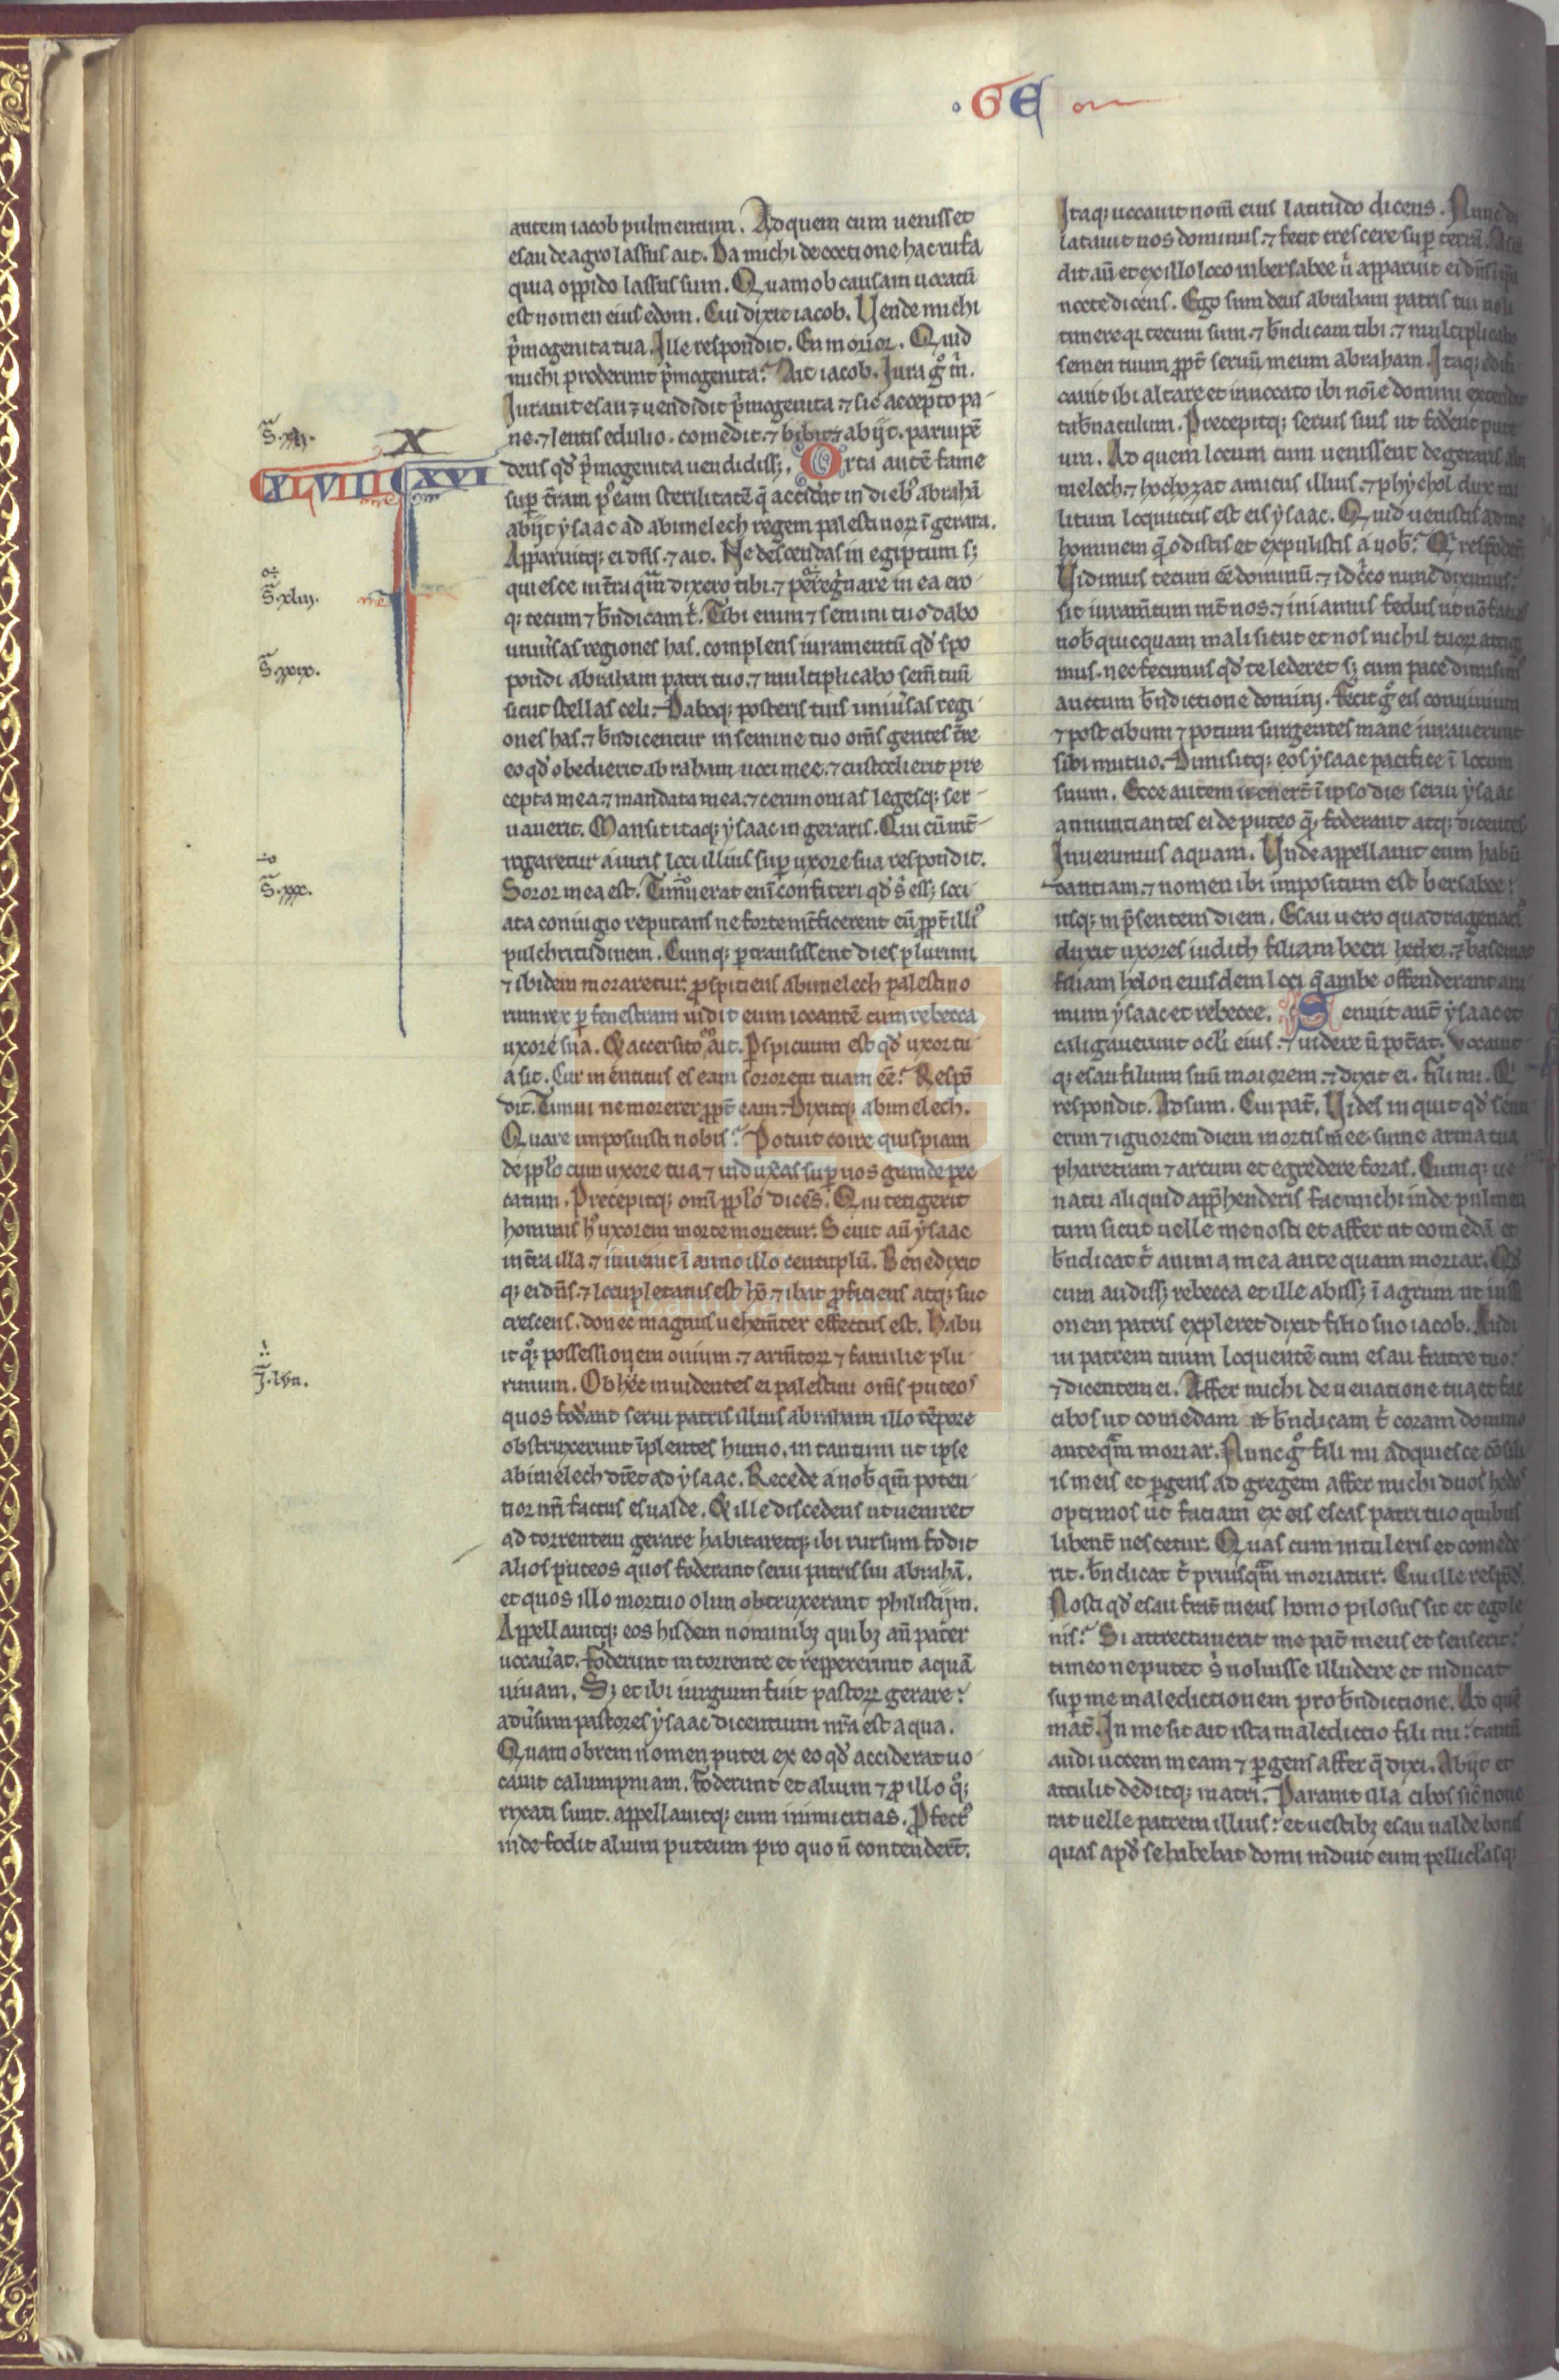 GE
autem iacob pulmentum. Ad quem cum uenisset
esau de agro lassus ait. Da michi de coctione hac rufa
quia oppido lassus sum. Quam ob causam uocatū
est nomen eius edom. Cui dixit iacob. Uende michi
p̄mogenita tua. Ille respondit. En morior. Quid
michi proderunt p̄mogenita? Ait iacob. Iura gͦ m̄.
Iurauit esau ⁊ uendidit p̄mogenita ⁊ sic accepto pa-
ne ⁊ lentis edulio. comedit ⁊ bibit ⁊ abijt. paruipē
dens qđ p̄mogenita uendidiss;. Orta autē fame
sup̱ t̄ram pꝰ eam sterilitatē q̄ accid̄at in diebꝰ abrahā
abijt ẏsaac ad abimelech regem palestinoꝝ ī gerara.
Apparuitq; ei dn̄s ⁊ ait. Ne descendas in egiptum s;
quiesce in t̄ra qm̄ dixero tibi ⁊ peregrinare in ea ero
q; tecum ⁊ bn̄dicam t̄. Tibi enim ⁊ semini tuo dabo
uniūsas regiones has. complens iuramentū qđ spo
pondi abraham patri tuo. ⁊ multiplicabo sem̄ tuū
sicut stellas celi. Daboq; posteris tuis uniūsas regi
ones has. ⁊ bn̄dicentur in semine tuo om̄s gentes t̄re
eo qđ obedierit abraham uoci mee. ⁊ custodierit pre
cepta mea ⁊ mandata mea. ⁊ cerimonias legesq; ser-
uauerit. Mansit itaq; ẏsaac in geraris. Qui cū int̄-
rogaretur a uiris loci illius sup̱ uxore sua respondit.
Soror mea est. Timuerat enī confiteri qđ s̄ ess; soci
ata coniugio reputans ne forte int̄ficerent eū ppt̄ illiꝰ
pulchritudinem. Cumq; p̱transissent dies plurimi
⁊ ibidem moraretur. p̱spiciens abimelech palestino
rum rex p̱ fenestram uidit eum iocantē cum rebecca
uxore sua. Et accersito ait. Ꝑspicuum est qđ uxor tu
a sit. Cur mentitus es eam sororem tuam eē? Respō
dit. Timui ne morerer ppt̄ eam. Dixitq; abimelech.
Quare imposuisti nobis? Potuit coire quispiam
de pplo cum uxore tua ⁊ induxeras sup̱ nos grande pec
catum. Precepitq; omi pplo dicēs. Qui tetigerit
hominis hꝰ uxorem morte morietur. Seuit aū ẏsaac
in t̄ra illa. ⁊ inuenit ī anno illo centuplū. Benedixit
q; ei dn̄s. ⁊ locupletatus est hō. ⁊ ibat p̱ficiens atq; suc
crescens. donec magnus uehem̄ter effectus est. Habu
it q; possessionem ouium. ⁊ arm̄toꝝ ⁊ familie plu
rimum. Ob hec inuidentes ei palestini om̄s puteos
quos foderant serui patris illius abraham illo tēpore
obstruxerunt īplentes humo. in tantum ut ipse
abimelech dic̄et ad ẏsaac. Recede a nob qm̄ poten
tior nr̄i factus es ualde. Et ille discedens ut ueniret
ad torrentem gerare habitaretq; ibi rursum fodit
alios puteos quos foderant serui patris sui abrahā.
et quos illo mortuo olim obstruxerant philistijm.
Appellauitq; eos hisdem nominibꝫ quibꝫ añ pater
uocau̅at. Foderunt in torrente et reppererunt aquā
uiuam. Sꝫ et ibi iurgium fuit pastoꝝ gerare:
adūsum pastores ẏsaac dicentium nr̄a est aqua.
Quam obrem nomen putei ex eo qđ acciderat uo
cauit calumpniam. Foderunt et alium ⁊ p̱ illo q;
rixati sunt. appellauitq; eum inimicitias. Ꝓfectꝰ
inde fodit alium puteum pro quo n̄ contender̄t.
S. xxx.
J. lvii.
X
XLVIII XXVI
S. xliii.
S. xxix.
Itaq; uocauit nom̄ eius latitudo dicens. Nunc di
latauit nos dominus. ⁊ fecit crescere sup̱ terrā.
dit aū et ex illo loco in bersabee ū apparuit ei dn̄s
nocte dicens. Ego sum deus abraham patris tui noli
timere qꝛ tecum sum. ⁊ bn̄dicam tibi. ⁊ multiplicabo
semen tuum ppt̄ seruū meum abraham. Itaq; edifi
cauit ibi altare et inuocato ibi noīe domini
tab̄naculum. Precepitq; seruis suis ut foderent pute
um. Ad quem locum cum uenissent de geraris
melech ⁊ hochozat amicus illius. ⁊ phẏchol dux mi
litum locutus est eis ẏsaac. Quid uenistis ad me
hominem q̄ odistis et expulistis a uob?
Uidimus tecum eē dominū ⁊ idc̄co nunc diximus:
sit iuram̄tum int̄ nos. ⁊ ineamus fedus ut nō facias
nob quicquam mali sicut et nos nichil tuoꝝ
mus. nec fecimus qđ te lederet sꝫ cum pace dimisimꝰ
auctum bn̄dictione domini. Fecit gͦ eis conuiuium
⁊ post cibum ⁊ potum surgentes mane iurauerunt
sibi mutuo. Dimisitq; eos ẏsaac pacifice ī locum
suum. Ecce autem uener̄t ī ipso die serui ẏsaac
annuntiantes ei de puteo q̄ foderant atq; dicentes
Inuenimus aquam. Unde appellauit eum habū
dantiam. ⁊ nomen ibi impositum est bersabee:
usq; in p̄sentem diem. Esau uero quadragenariꝰ
duxit uxores iudith filiam beeri hethei. ⁊
filiam helon eiusdem loci q̄ ambe offenderant ani
mum ẏsaac et rebecce. Senuit aut̄ ẏsaac et
caligauerunt oculi eius. ⁊ uidere n̄ pot̄at. Uocauit
q; esau filium suū maiorem. ⁊ dixit ei. Fili mi.
respondit. Adsum. Cui pat̄. Uides inquit qđ senu
erim ⁊ ignorem diem mortis mee. sume arma tua
pharetram ⁊ arcum et egredere foras. Cumq; ue
natu aliquid app̄henderis fac michi inde pulmen
tum sicut uelle me nosti et affer ut comedā et
bn̄dicat t̄ anima mea ante quam moriar.
cum audiss; rebecca et ille abiss; ī agrum ut
onem patris expleret dixit filio suo iacob. Audi
ui patrem tuum loquentē cum esau fratre tuo:
⁊ dicentem ei. Affer michi de uenatione tua et fac
cibos ut comedam et bn̄dicam t̄ coram domino
anteqm̄ moriar. Nunc gͦ fili mi adquiesce cōsili
is meis et p̱gens ad gregem affer michi duos hedos
optimos ut faciam ex eis escas patri tuo quibus
libent̄ uescetur. Quas cum intuleris et comede
rit. bn̄dicat t̄ priusqm̄ moriatur. Cui ille respōd.
Nosti qđ esau frat̄ meus homo pilosus sit et ego le
nis? Si attrectauerit me pat̄ meus et senserit:
timeo ne putet s̄ uoluisse illudere et inducat
sup̱ me maledictionem pro bn̄dictione. Ad quē
mat̄. In me sit ait ista maledictio fili mi: tantū
audi uocem meam ⁊ p̱gens affer q̄ dixi. Abijt et
attulit deditq; matri. Parauit illa cibos sic̄ noue
rat uelle patrem illius: et uestibꝫ esau ualde bonis
quas apđ se habebat domi induit eum pelliclasq;